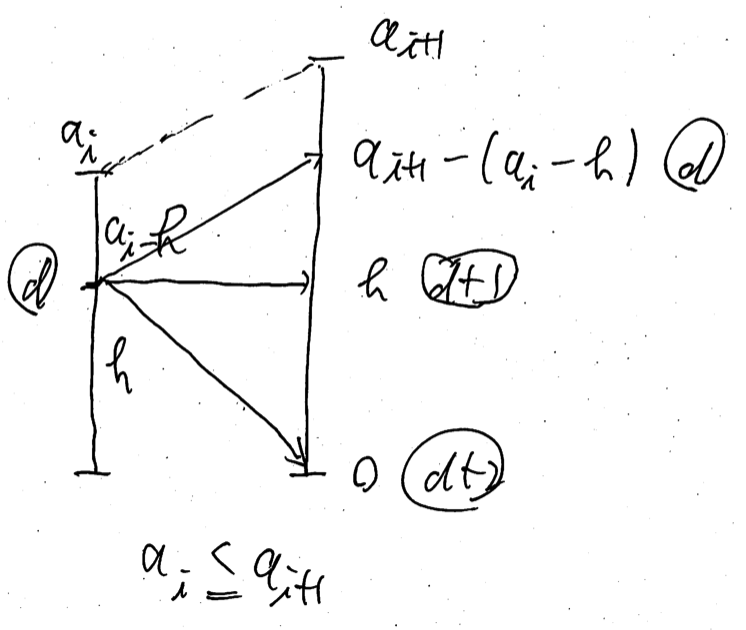 a_{i+1}
a_i
a_{i+1} - (a_i - h) d
a_i - h
d
h d+1
h
0 d+2
a_i ≤ a_{i+1}